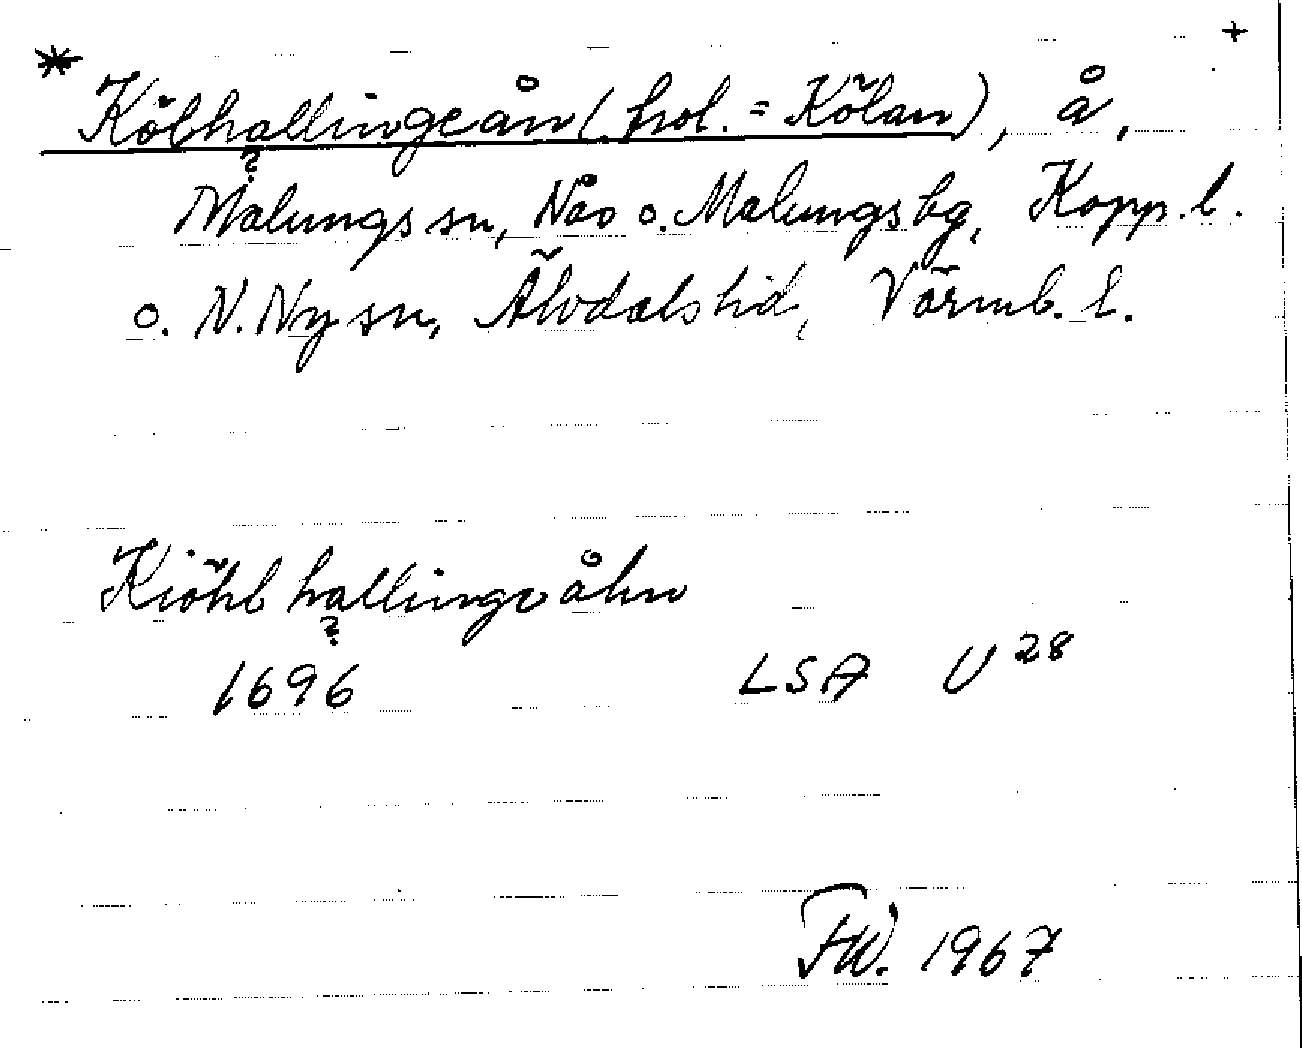 * +
Kölhallingeån (trol. = Kölan), å,
?
Malungs sn, Nås o. Malungs bg, Kopp. l.
o. N. Ny sn, Älvdals hd, Värml. l.
Kiöhl hallinge åhn
?
1696 LSA U 28
FW. 1967